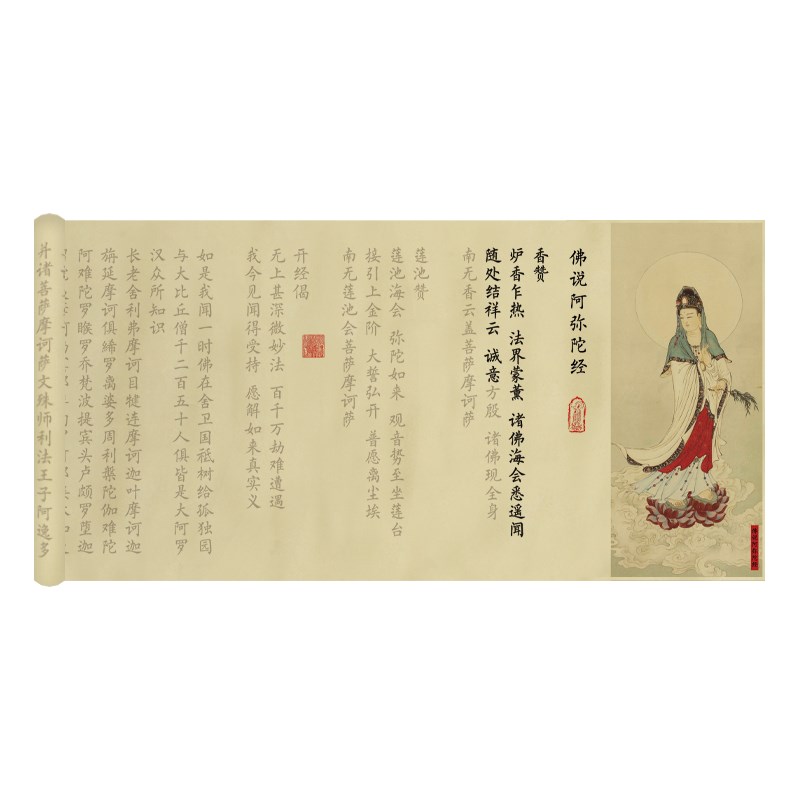 佛说阿弥陀经
香赞
炉香乍热 法界蒙薰 诸佛海会悉遥闻
随处结祥云 诚意方殷 诸佛现全身
南无香云盖菩萨摩诃萨
莲池赞
莲池海会 弥陀如来 观音势至坐莲台
接引上金阶 大誓弘开 普愿离尘埃
南无莲池会菩萨摩诃萨
开经偈
无上甚深微妙法 百千万劫难遭遇
我今见闻得受持 愿解如来真实义
如是我闻一时佛在舍卫国祗树给孤独园
与大比丘僧千二百五十人俱皆是大阿罗
汉众所知识
长老舍利弗摩诃目犍连摩诃迦叶摩诃迦
旃延摩诃俱絺罗离婆多周利槃陀伽难陀
阿难陀罗睺罗乔梵波提宾头卢颇罗堕迦
并诸菩萨摩诃萨文殊师利法王子阿逸多